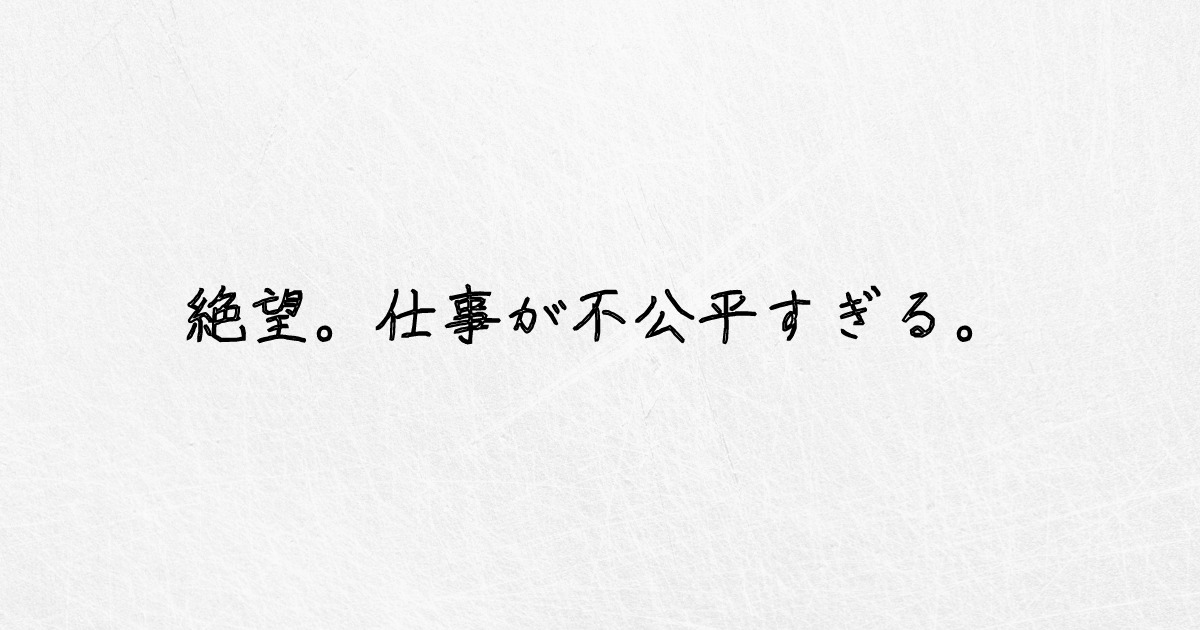 絶望。仕事が不公平すぎる。